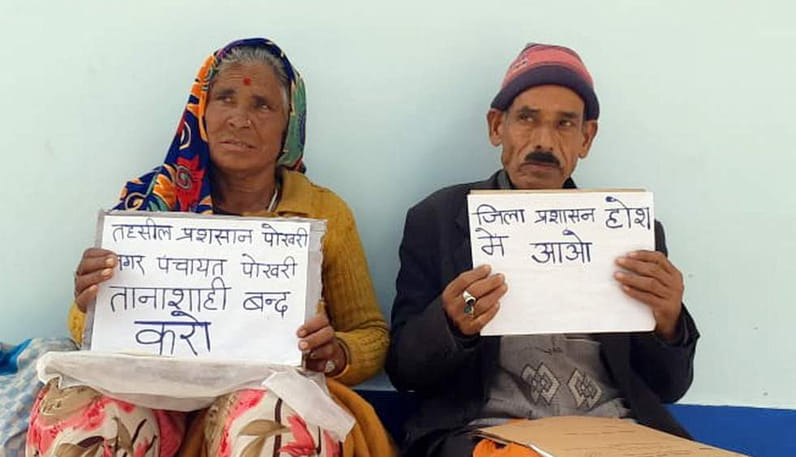 तहसील प्रशसान पोखरी
नगर पंचायत पोखरी
तानाशाही बन्द
करो
जिला प्रशासन होश
मे आओ